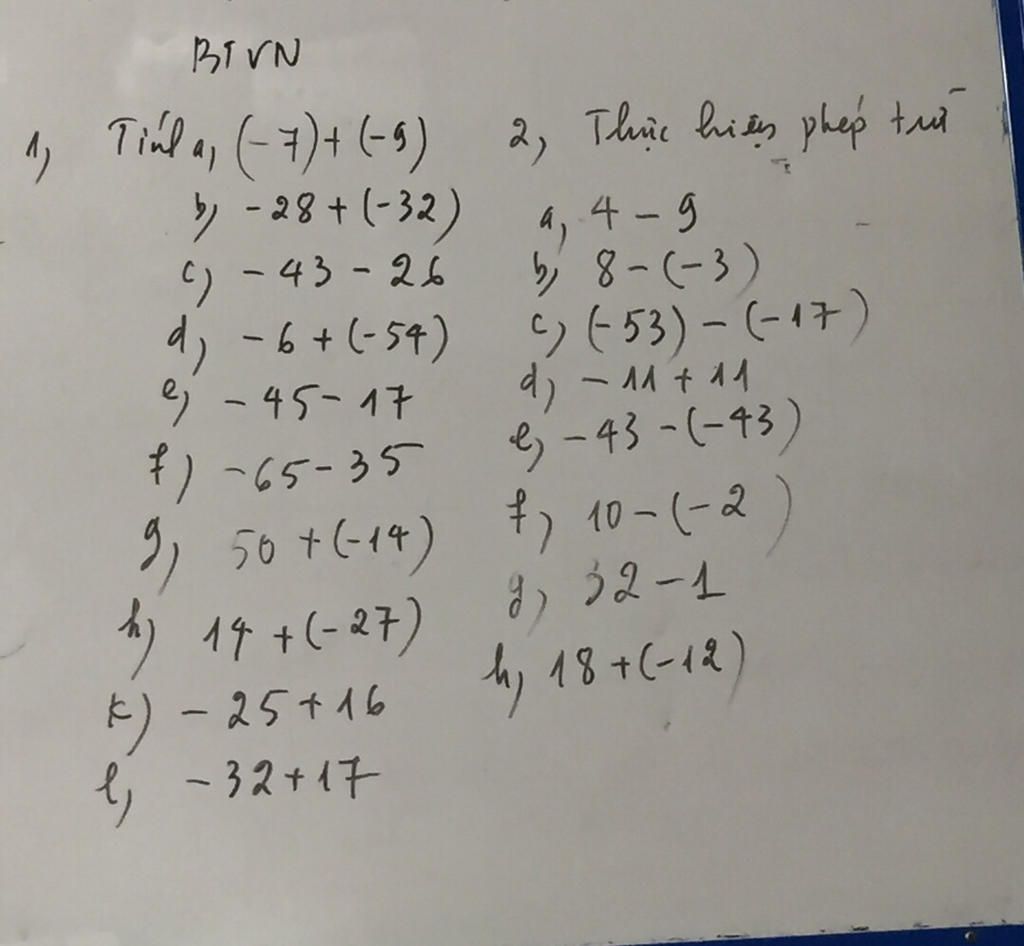 BTVN
1, Tính a, (-7)+(-9)
b, -28+(-32)
c, -43-26
d, -6+(-54)
e, -45-17
f) -65-35
g, 50+(-14)
h) 14+(-27)
k) -25+16
l, -32+17
2, Thực hiện phép trừ
a, 4-9
b, 8-(-3)
c, (-53)-(-17)
d, -11+11
e, -43-(-43)
f, 10-(-2)
g, 32-1
h, 18+(-12)